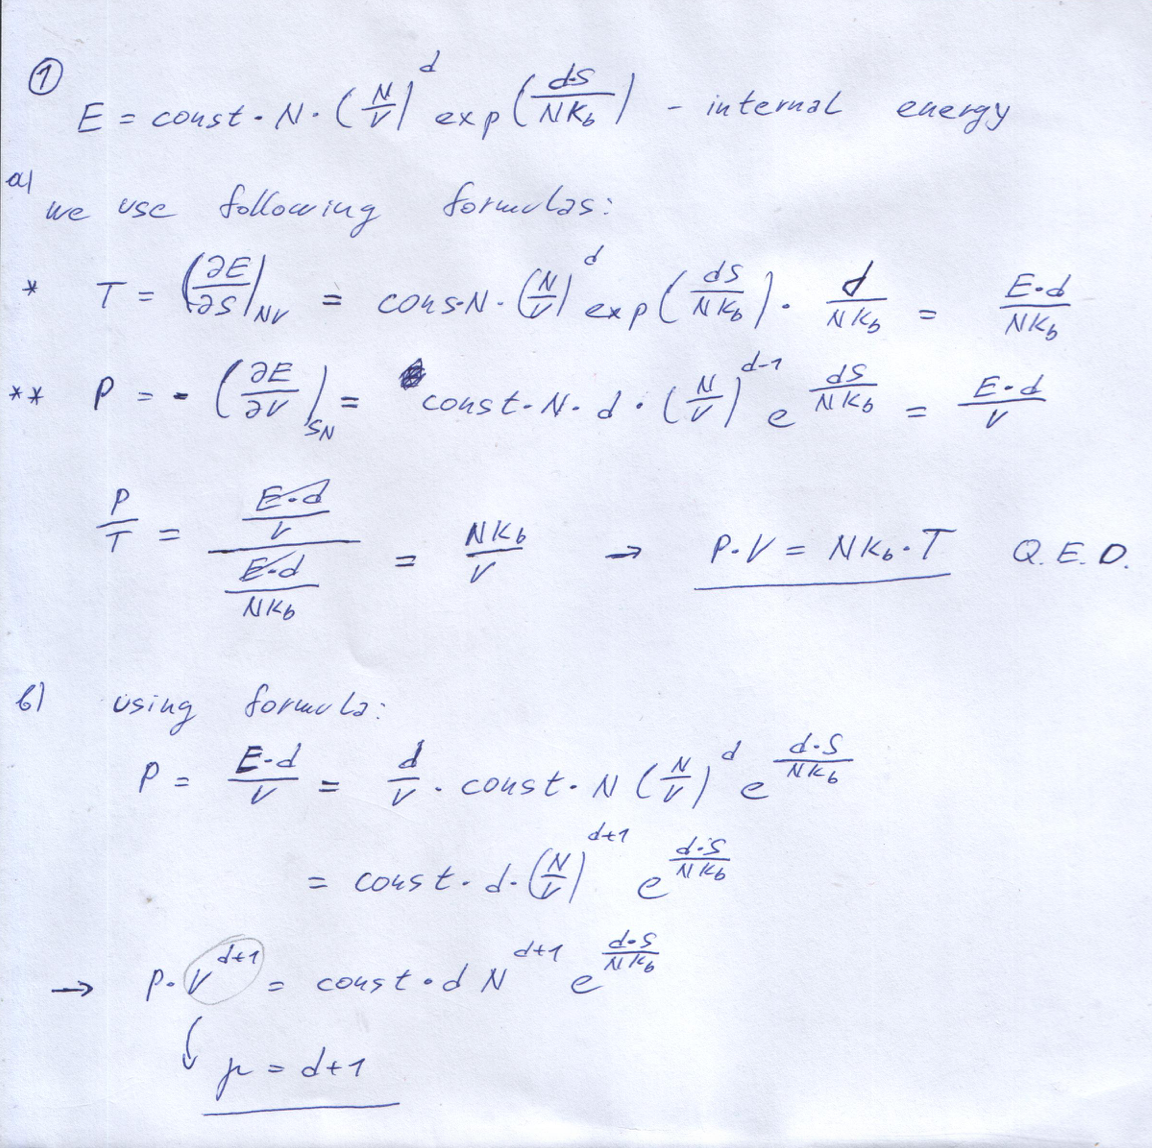 ①
E = const · N · (N/V)^d exp(dS/NK_b) - internal energy
a)
we use following formulas:
* T = (∂E/∂S)_NV = cons·N · (N/V)^d exp(dS/NK_b) · d/NK_b = E·d/NK_b
** P = - (∂E/∂V)_SN = const·N·d · (N/V)^d-1 e^dS/NK_b = E·d/V
P/T = (E·d/V)/(E·d/NK_b) = NK_b/V → P·V = NK_b·T Q.E.D.
b) using formula:
P = E·d/V = d/V · const·N (N/V)^d e^d·S/NK_b
= const·d·(N/V)^d+1 e^d·S/NK_b
→ P·V^d+1 = const·d N^d+1 e^d·S/NK_b
↓ μ = d+1